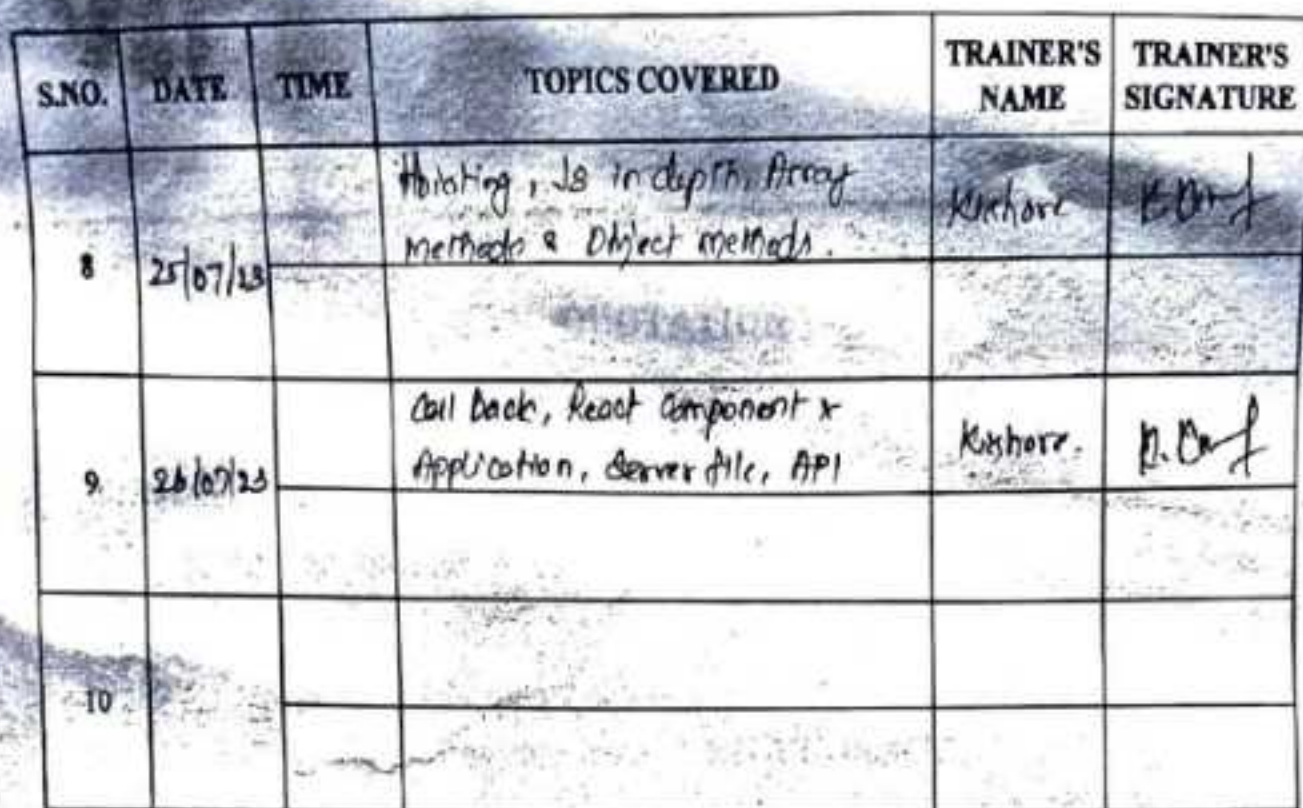 S.NO. DATE TIME TOPICS COVERED TRAINER'S NAME TRAINER'S SIGNATURE
Hoisting, Js in depth, Array
methods & Object methods.
Kishore
8 25/07/23
Call Back, React Component &
Application, Server file, API
Kishore.
9. 26/07/23
10